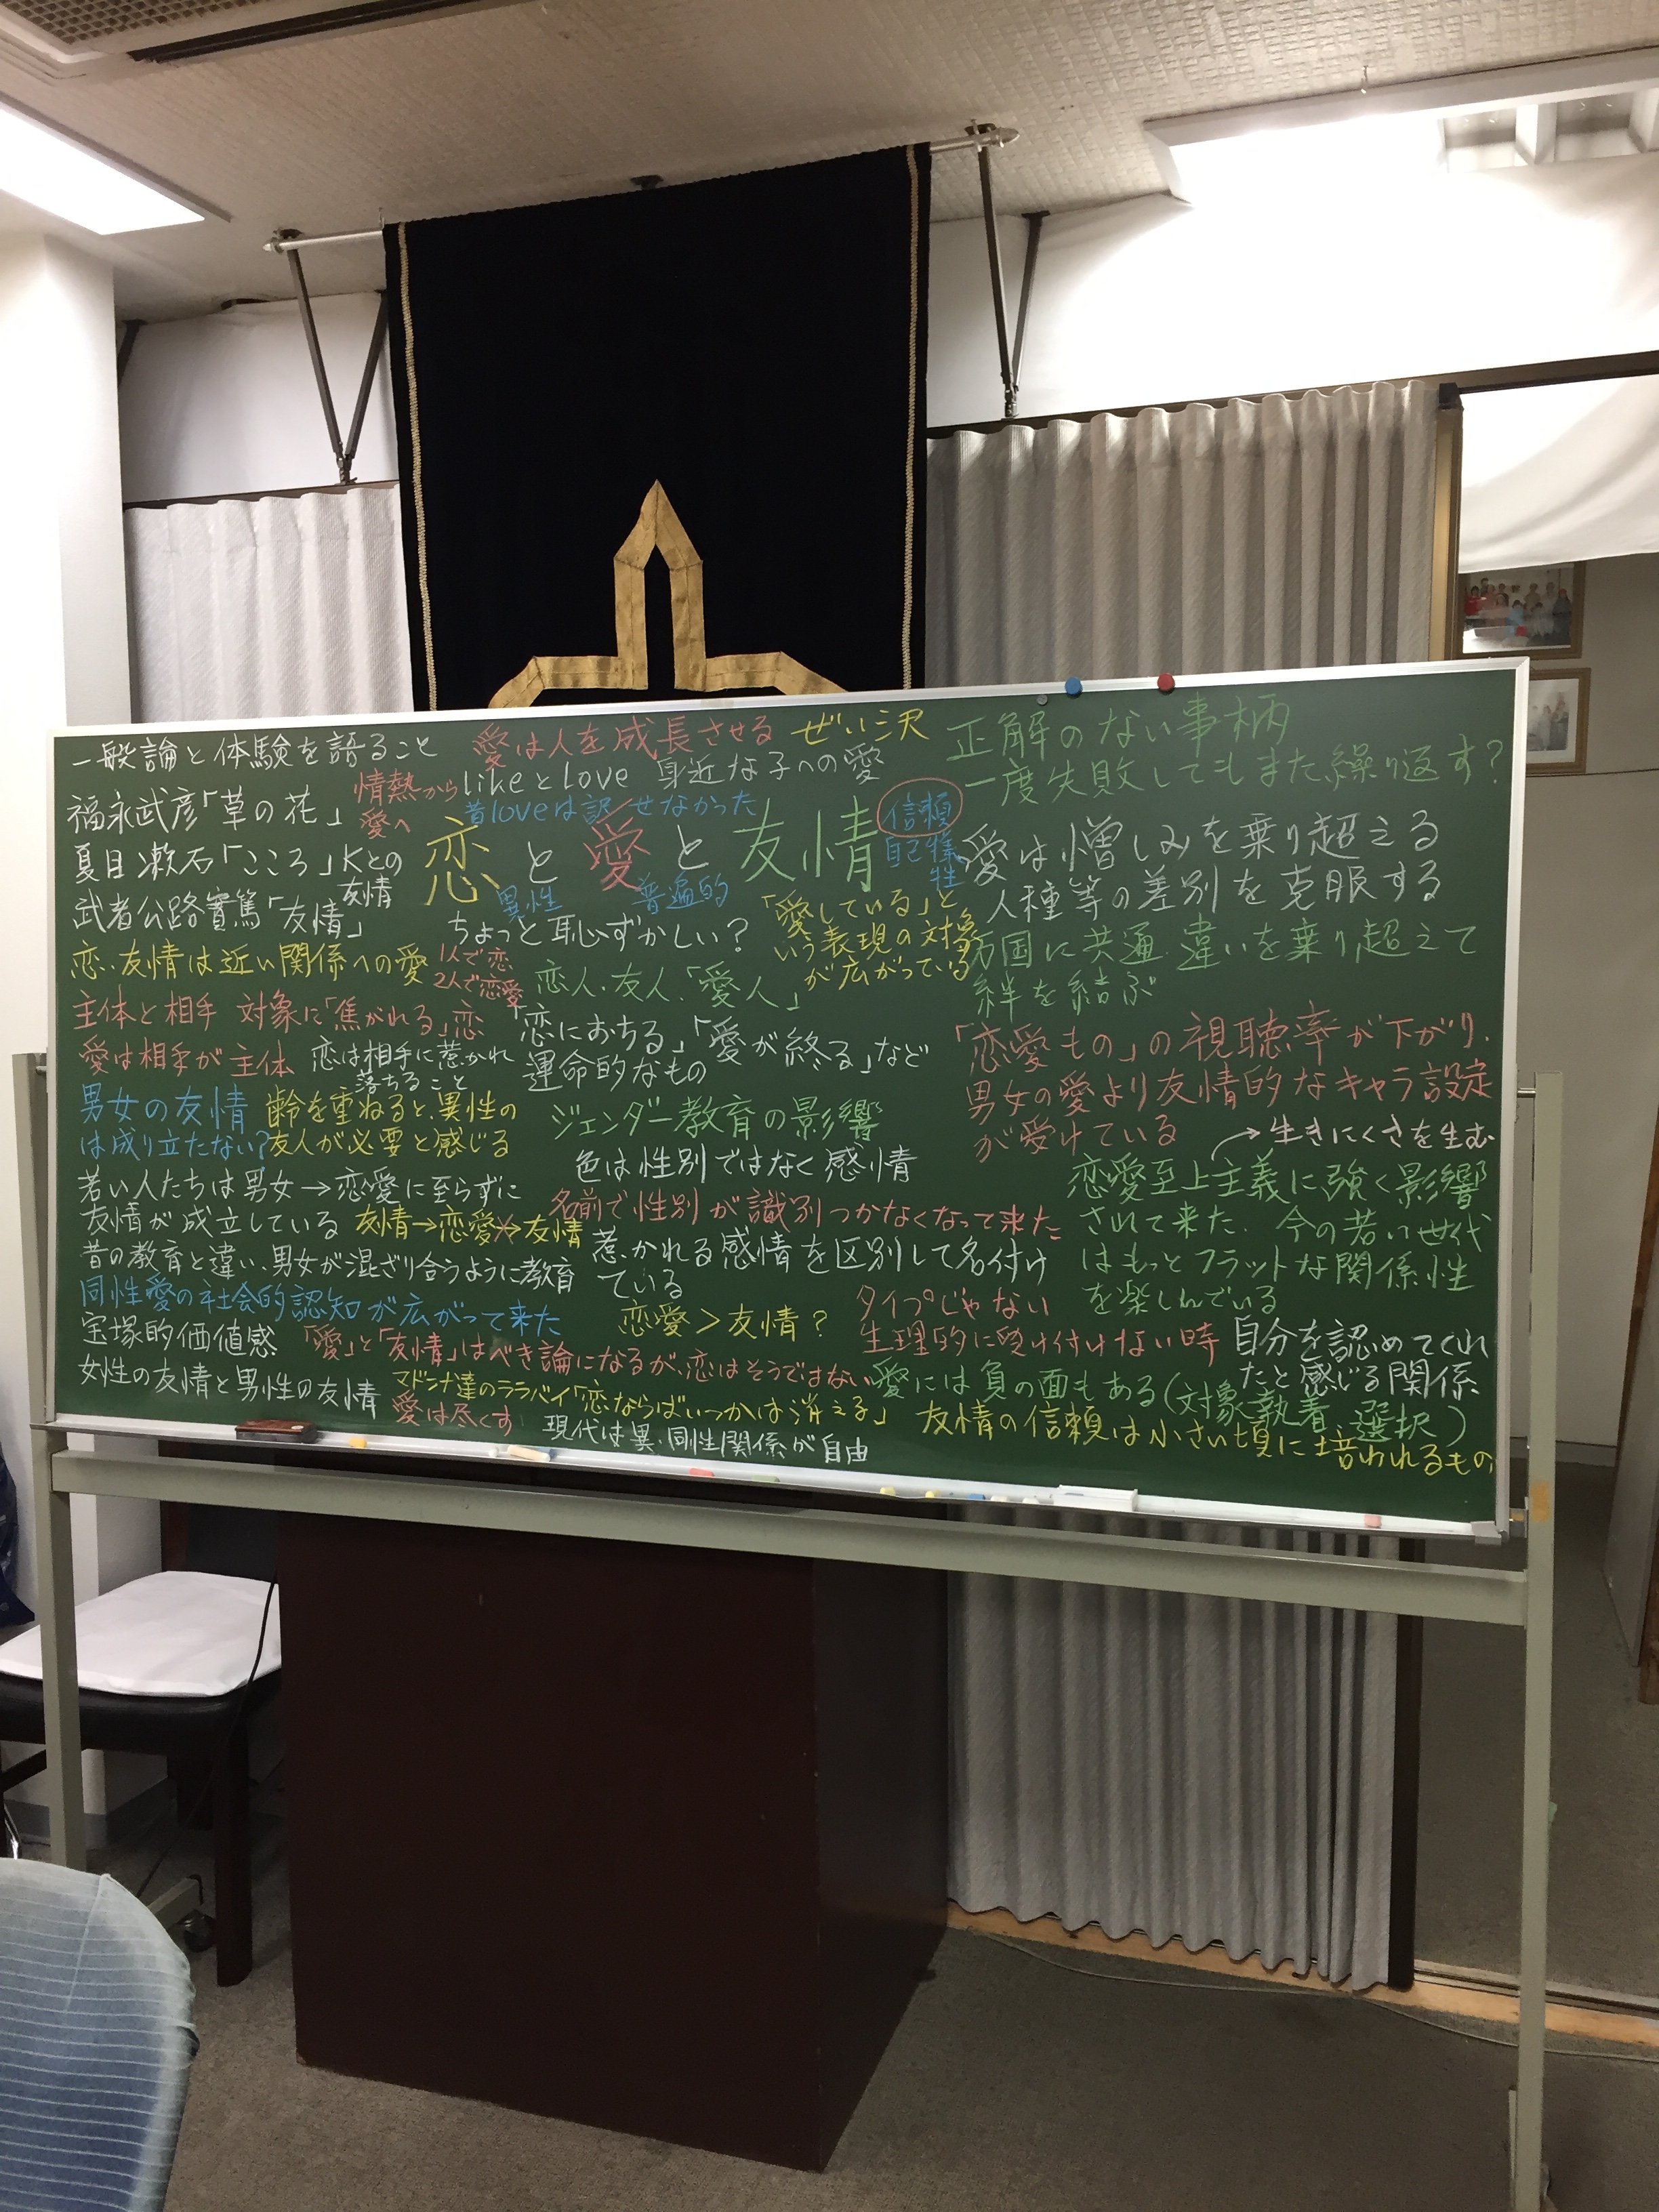 一般論と体験を語ること
愛は人を成長させる
ぜい沢
正解のない事柄
一度失敗してもまた繰り返す?
情熱から
愛へ
likeとlove
身近な子への愛
昔loveは訳せなかった
福永武彦「草の花」
夏目漱石「こころ」Kとの
友情
武者公路實篤「友情」
恋と愛と友情
異性
普遍的
信頼
自己犠
牲
愛は憎しみを乗り超える
人種等の差別を克服する
万国に共通 違いを乗り超えて
絆を結ぶ
ちょっと恥ずかしい?
「愛している」と
いう表現の対象
が広がっている
恋、友情は近い関係への愛
1人で恋
2人で恋愛
恋人・友人・「愛人」
主体と相手 対象に「焦がれる」恋
愛は相手が主体
恋は相手に惹かれ
落ちること
「恋におちる」「愛が終る」など
運命的なもの
「恋愛もの」の視聴率が下がり、
男女の愛より友情的なキャラ設定
が受けている
→生きにくさを生む
男女の友情
は成り立たない?
齢を重ねると、異性の
友人が必要と感じる
ジェンダー教育の影響
色は性別ではなく感情
恋愛至上主義に強く影響
されて来た。今の若い世代
はもっとフラットな関係性
を楽しんでいる
若い人たちは男女→恋愛に至らずに
友情が成立している
友情→恋愛→友情
名前で性別が識別つかなくなって来た
惹かれる感情を区別して名付け
ている
昔の教育と違い、男女が混ざり合うように教育
同性愛の社会的認知が広がって来た
恋愛>友情?
タイプじゃない
生理的に受け付けない時
自分を認めてくれ
たと感じる関係
宝塚的価値感
「愛」と「友情」はべき論になるが、恋はそうではない
女性の友情と男性の友情
マドンナ達のララバイ「恋ならばいつかは消える」
愛は尽くす
愛には負の面もある(対象、執着、選択)
現代は異、同性関係が自由
友情の信頼は小さい頃に培われるもの